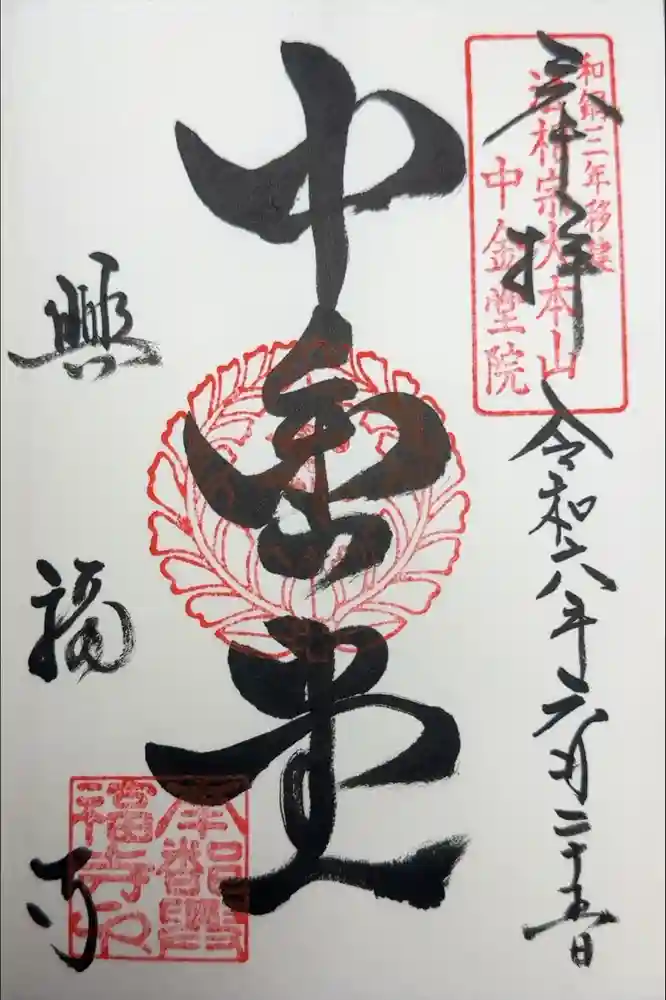 奉拝
令和六年六月二十五日
和銅三年移建
法相宗大本山
中金堂院
中金堂
興福寺
南都興福寺印